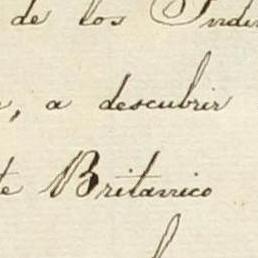 de los
, a descubrir
te Britanico